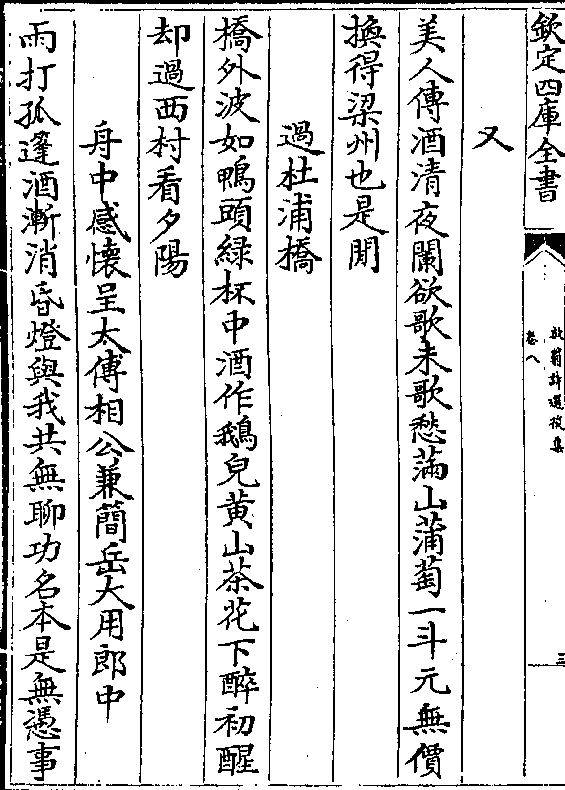 欽定四庫全書
放翁詩選後集
卷八
三
又
美人傳酒清夜闌欲歌未歌愁滿山蒲萄一斗元無價
換得梁州也是閒
過杜浦橋
橋外波如鴨頭緑杯中酒作鵝兒黃山茶花下醉初醒
却過西村看夕陽
舟中感懷呈太傅相公兼簡岳大用郎中
雨打孤篷酒漸消昏燈與我共無聊功名本是無憑事